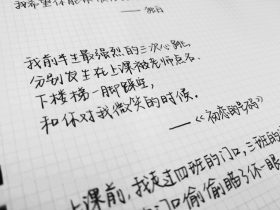 我希望你能
我前半生最强烈的三次心跳，
分别发生在上课被老师点名、
下楼梯一脚踩空，
和你对我微笑的时候。
——《初恋
上课前，我走过四班的门口，三班的
门口偷偷瞄了你一眼